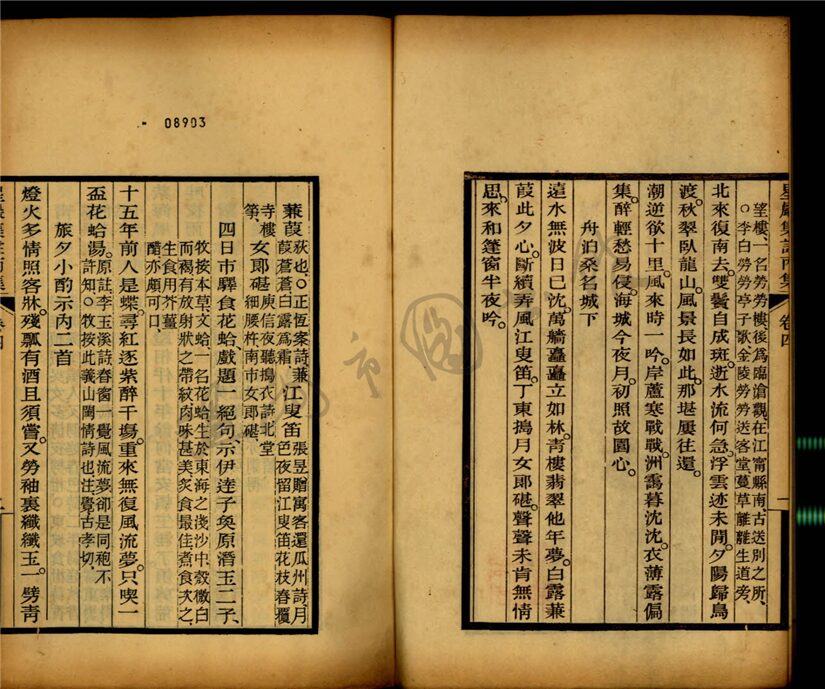 星巖集註丙集 卷四 一
望樓一名勞勞樓後爲臨滄觀在江甯縣南古送別之所、
○李白勞勞亭子歌金陵勞勞送客堂蔓草離離生道旁、
北來復南去。雙鬢自成斑。逝水流何急。浮雲迹未閒。夕陽歸鳥
渡。秋翠臥龍山。風景長如此。那堪屢往還。
潮逆欲十里。風來時一吟。岸蘆寒戰戰。洲靄暮沈沈。衣薄露偏
集。醉輕愁易侵。海城今夜月。初照故園心。
舟泊桑名城下
遠水無波日已沈。萬檣矗矗立如林。靑樓翡翠他年夢。白露蒹
葭此夕心。斷續弄風江叟笛。丁東搗月女郞碪。聲聲未肯無情
思。來和篷窗半夜吟。
08903
蒹葭 荻也、○正恆案詩蒹葭蒼蒼白露爲霜、 江叟笛 張昱贈寓客還瓜州詩月色夜留江叟笛花枝春覆
寺樓箏、 女郞碪 庾信夜聽搗衣詩北堂細腰杵南市女郞碪、
四日市驛食花蛤戲題一絕句示伊達子奐原潛玉二子、
牧按本草文蛤一名花蛤生於東海之淺沙中殼微白
而褐有放射狀之帶紋肉味甚美炙食最佳煮食次之、
生食用芥薑
醋亦頗可口
十五年前人是蝶。尋紅逐紫醉千場。重來無復風流夢。只喫一
盃花蛤湯。 原註李玉溪詩春窗一覺風流夢卻是同袍不許知○牧按此義山閨情詩也注覺古孝切、
旅夕小酌示內二首
燈火多情照客牀。殘瓢有酒且須嘗。又勞袖裏纖纖玉。一劈靑